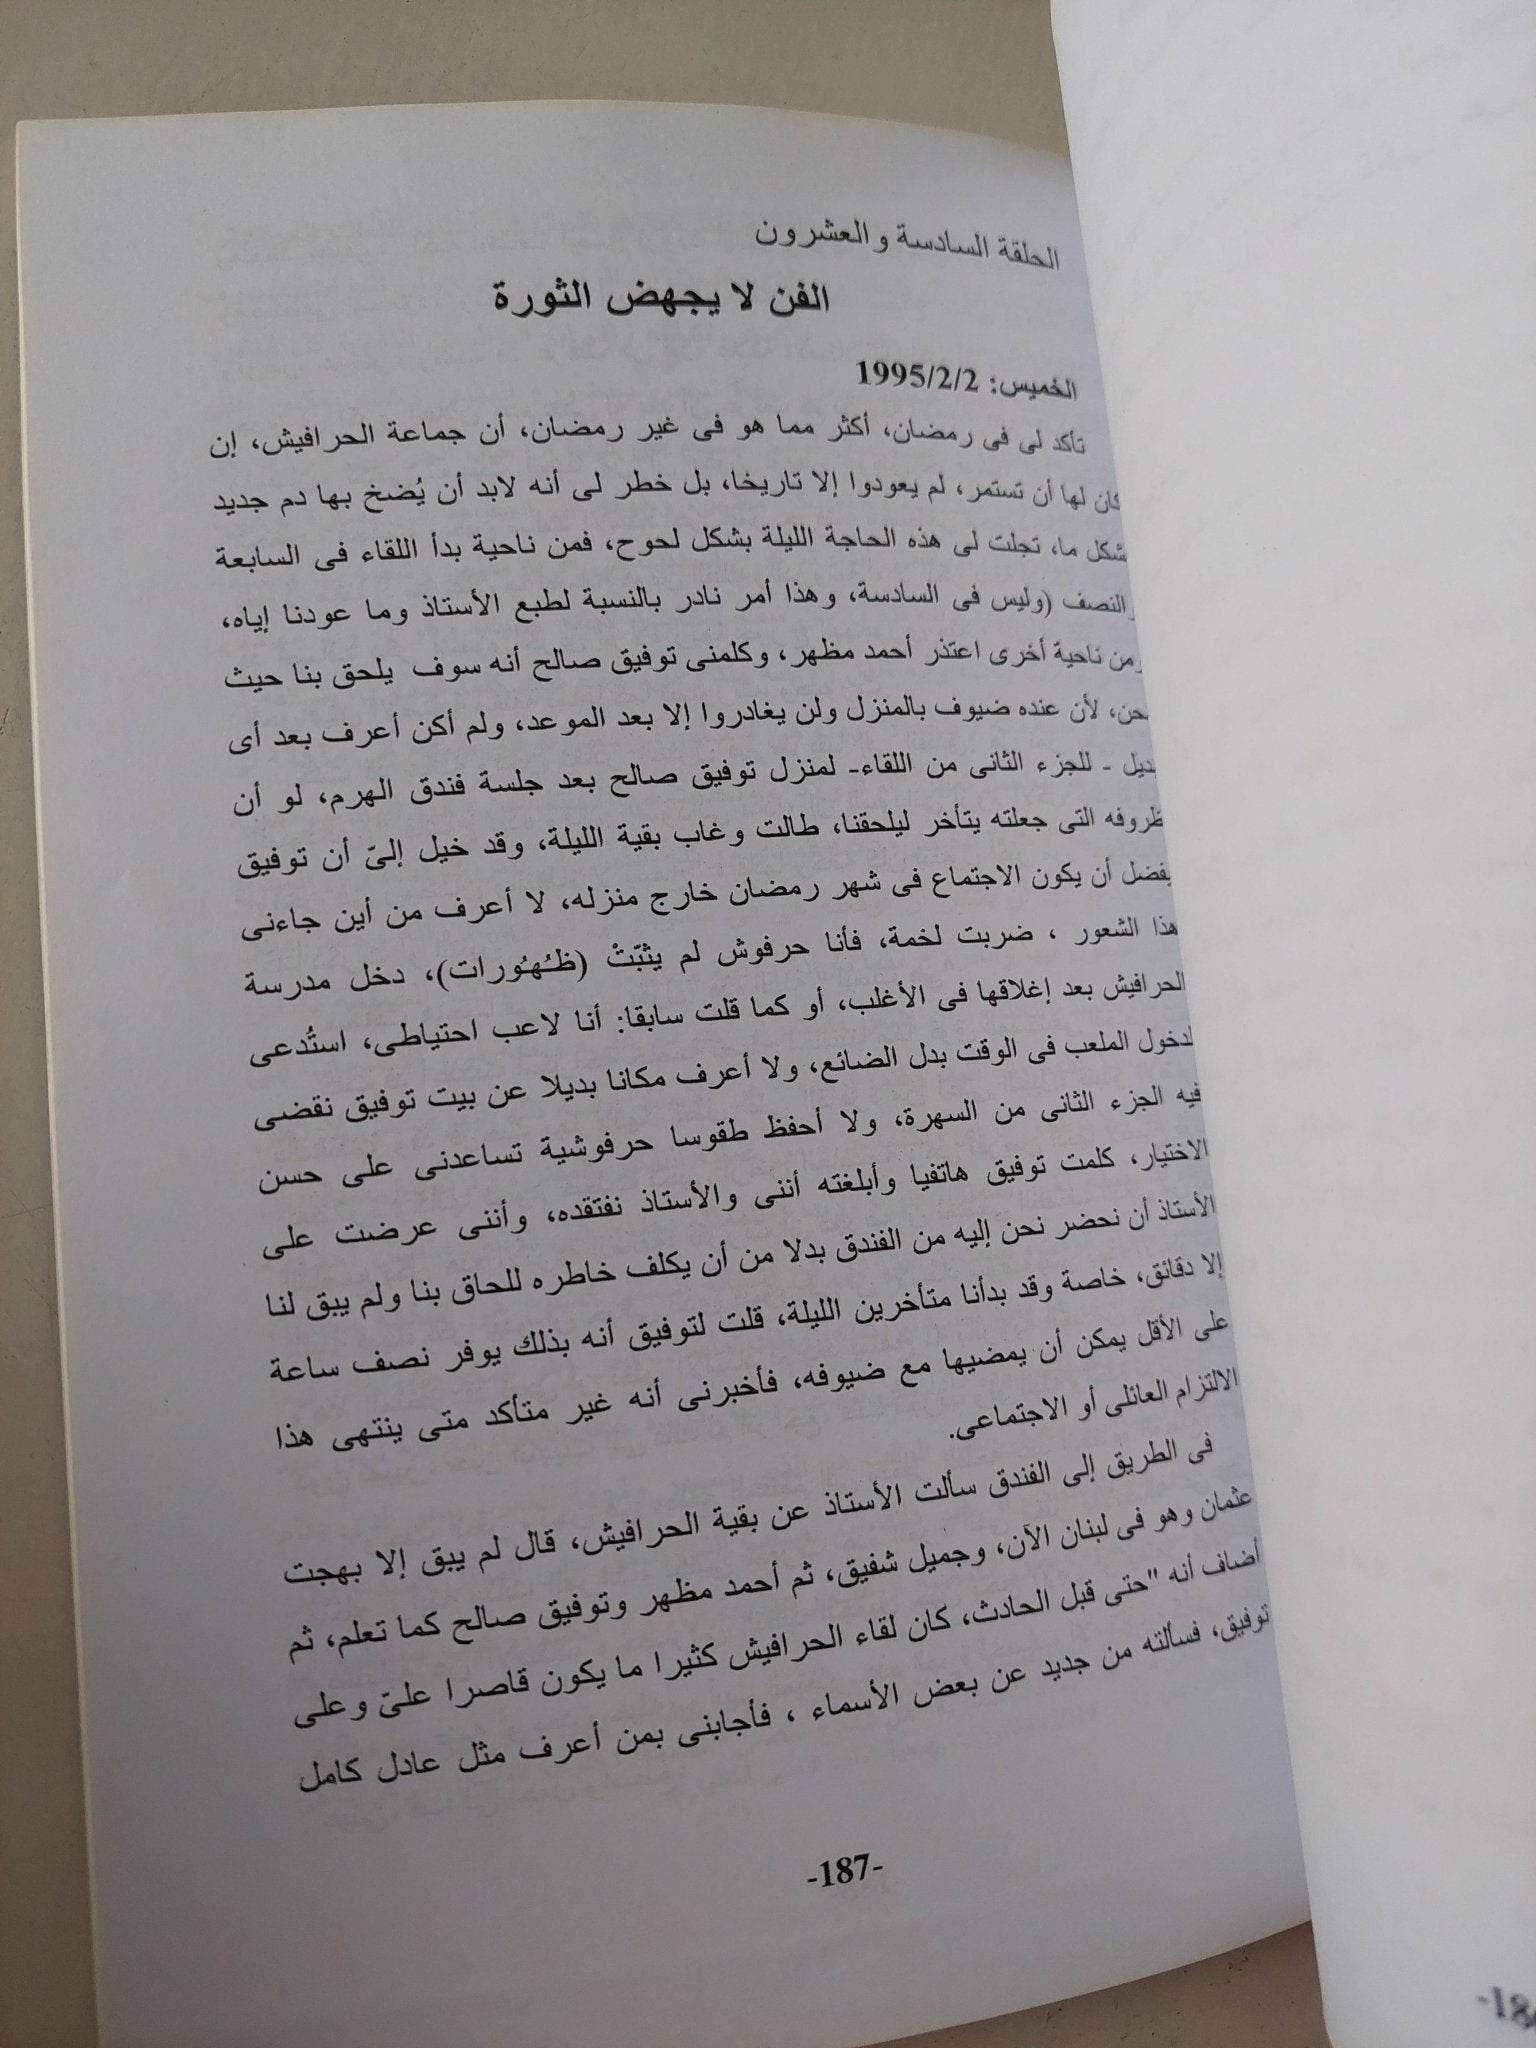 الحلقة السادسة والعشرون
الفن لا يجهض الثورة
الخميس: 1995/2/2
تأكد لى فى رمضان، أكثر مما هو فى غير رمضان، أن جماعة الحرافيش، إن
كان لها أن تستمر، لم يعودوا إلا تاريخا، بل خطر لى أنه لابد أن يُضخ بها دم جديد
بشكل ما، تجلت لى هذه الحاجة الليلة بشكل لحوح، فمن ناحية بدأ اللقاء فى السابعة
والنصف (وليس فى السادسة، وهذا أمر نادر بالنسبة لطبع الأستاذ وما عودنا إياه،
ومن ناحية أخرى اعتذر أحمد مظهر، وكلمنى توفيق صالح أنه سوف يلحق بنا حيث
نحن، لأن عنده ضيوف بالمنزل ولن يغادروا إلا بعد الموعد، ولم أكن أعرف بعد أى
بديل - للجزء الثانى من اللقاء- لمنزل توفيق صالح بعد جلسة فندق الهرم، لو أن
ظروفه التى جعلته يتأخر ليلحقنا، طالت وغاب بقية الليلة، وقد خيل إلىّ أن توفيق
يفضل أن يكون الاجتماع فى شهر رمضان خارج منزله، لا أعرف من أين جاءنى
هذا الشعور ، ضربت لخمة، فأنا حرفوش لم يثبّتْ (ظـُهـُورات)، دخل مدرسة
الحرافيش بعد إغلاقها فى الأغلب، أو كما قلت سابقا: أنا لاعب احتياطى، استُدعى
لدخول الملعب فى الوقت بدل الضائع، ولا أعرف مكانا بديلا عن بيت توفيق نقضى
فيه الجزء الثانى من السهرة، ولا أحفظ طقوسا حرفوشية تساعدنى على حسن
الاختيار، كلمت توفيق هاتفيا وأبلغته أننى والأستاذ نفتقده، وأننى عرضت على
الأستاذ أن نحضر نحن إليه من الفندق بدلا من أن يكلف خاطره للحاق بنا ولم يبق لنا
إلا دقائق، خاصة وقد بدأنا متأخرين الليلة، قلت لتوفيق أنه بذلك يوفر نصف ساعة
على الأقل يمكن أن يمضيها مع ضيوفه، فأخبرنى أنه غير متأكد متى ينتهى هذا
الالتزام العائلى أو الاجتماعى.
فى الطريق إلى الفندق سألت الأستاذ عن بقية الحرافيش، قال لم يبق إلا بهجت
عثمان وهو فى لبنان الآن، وجميل شفيق، ثم أحمد مظهر وتوفيق صالح كما تعلم، ثم
أضاف أنه "حتى قبل الحادث، كان لقاء الحرافيش كثيرا ما يكون قاصرا علىّ وعلى
توفيق، فسألته من جديد عن بعض الأسماء ، فأجابنى بمن أعرف مثل عادل كامل
-187-